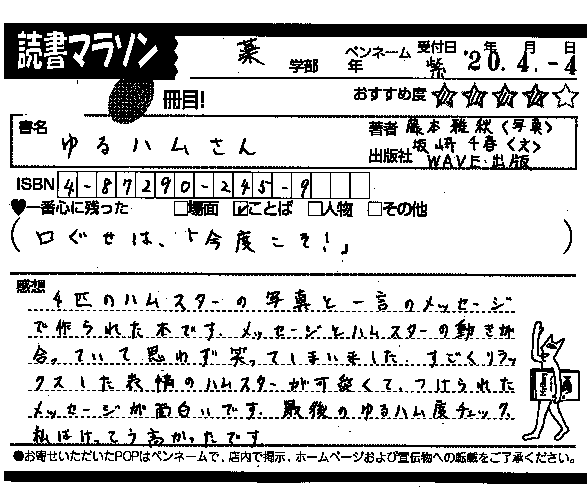 読書マラソン
薬 学部 年 ペンネーム 紫 受付日 '20年 4月 -4日
冊目!
おすすめ度 ★★★★☆
書名 ゆるハムさん
著者 藤本雅秋〈写真〉
坂崎千春〈文〉
出版社 WAVE出版
ISBN 4-87290-245-9
♥一番心に残った □場面 ☑ことば □人物 □その他
(口ぐせは、「今度こそ!」)
感想
4匹のハムスターの写真と一言のメッセージ
で作られた本です。メッセージとハムスターの動きが
合っていて思わず笑ってしまいました。すごくリラッ
クスした表情のハムスターが可愛くて、つけられた
メッセージが面白いです。最後のゆるハム度チェック
私はけっこう高かったです
●お寄せいただいたPOPはペンネームで、店内で掲示、ホームページおよび宣伝物への転載をご了承ください。